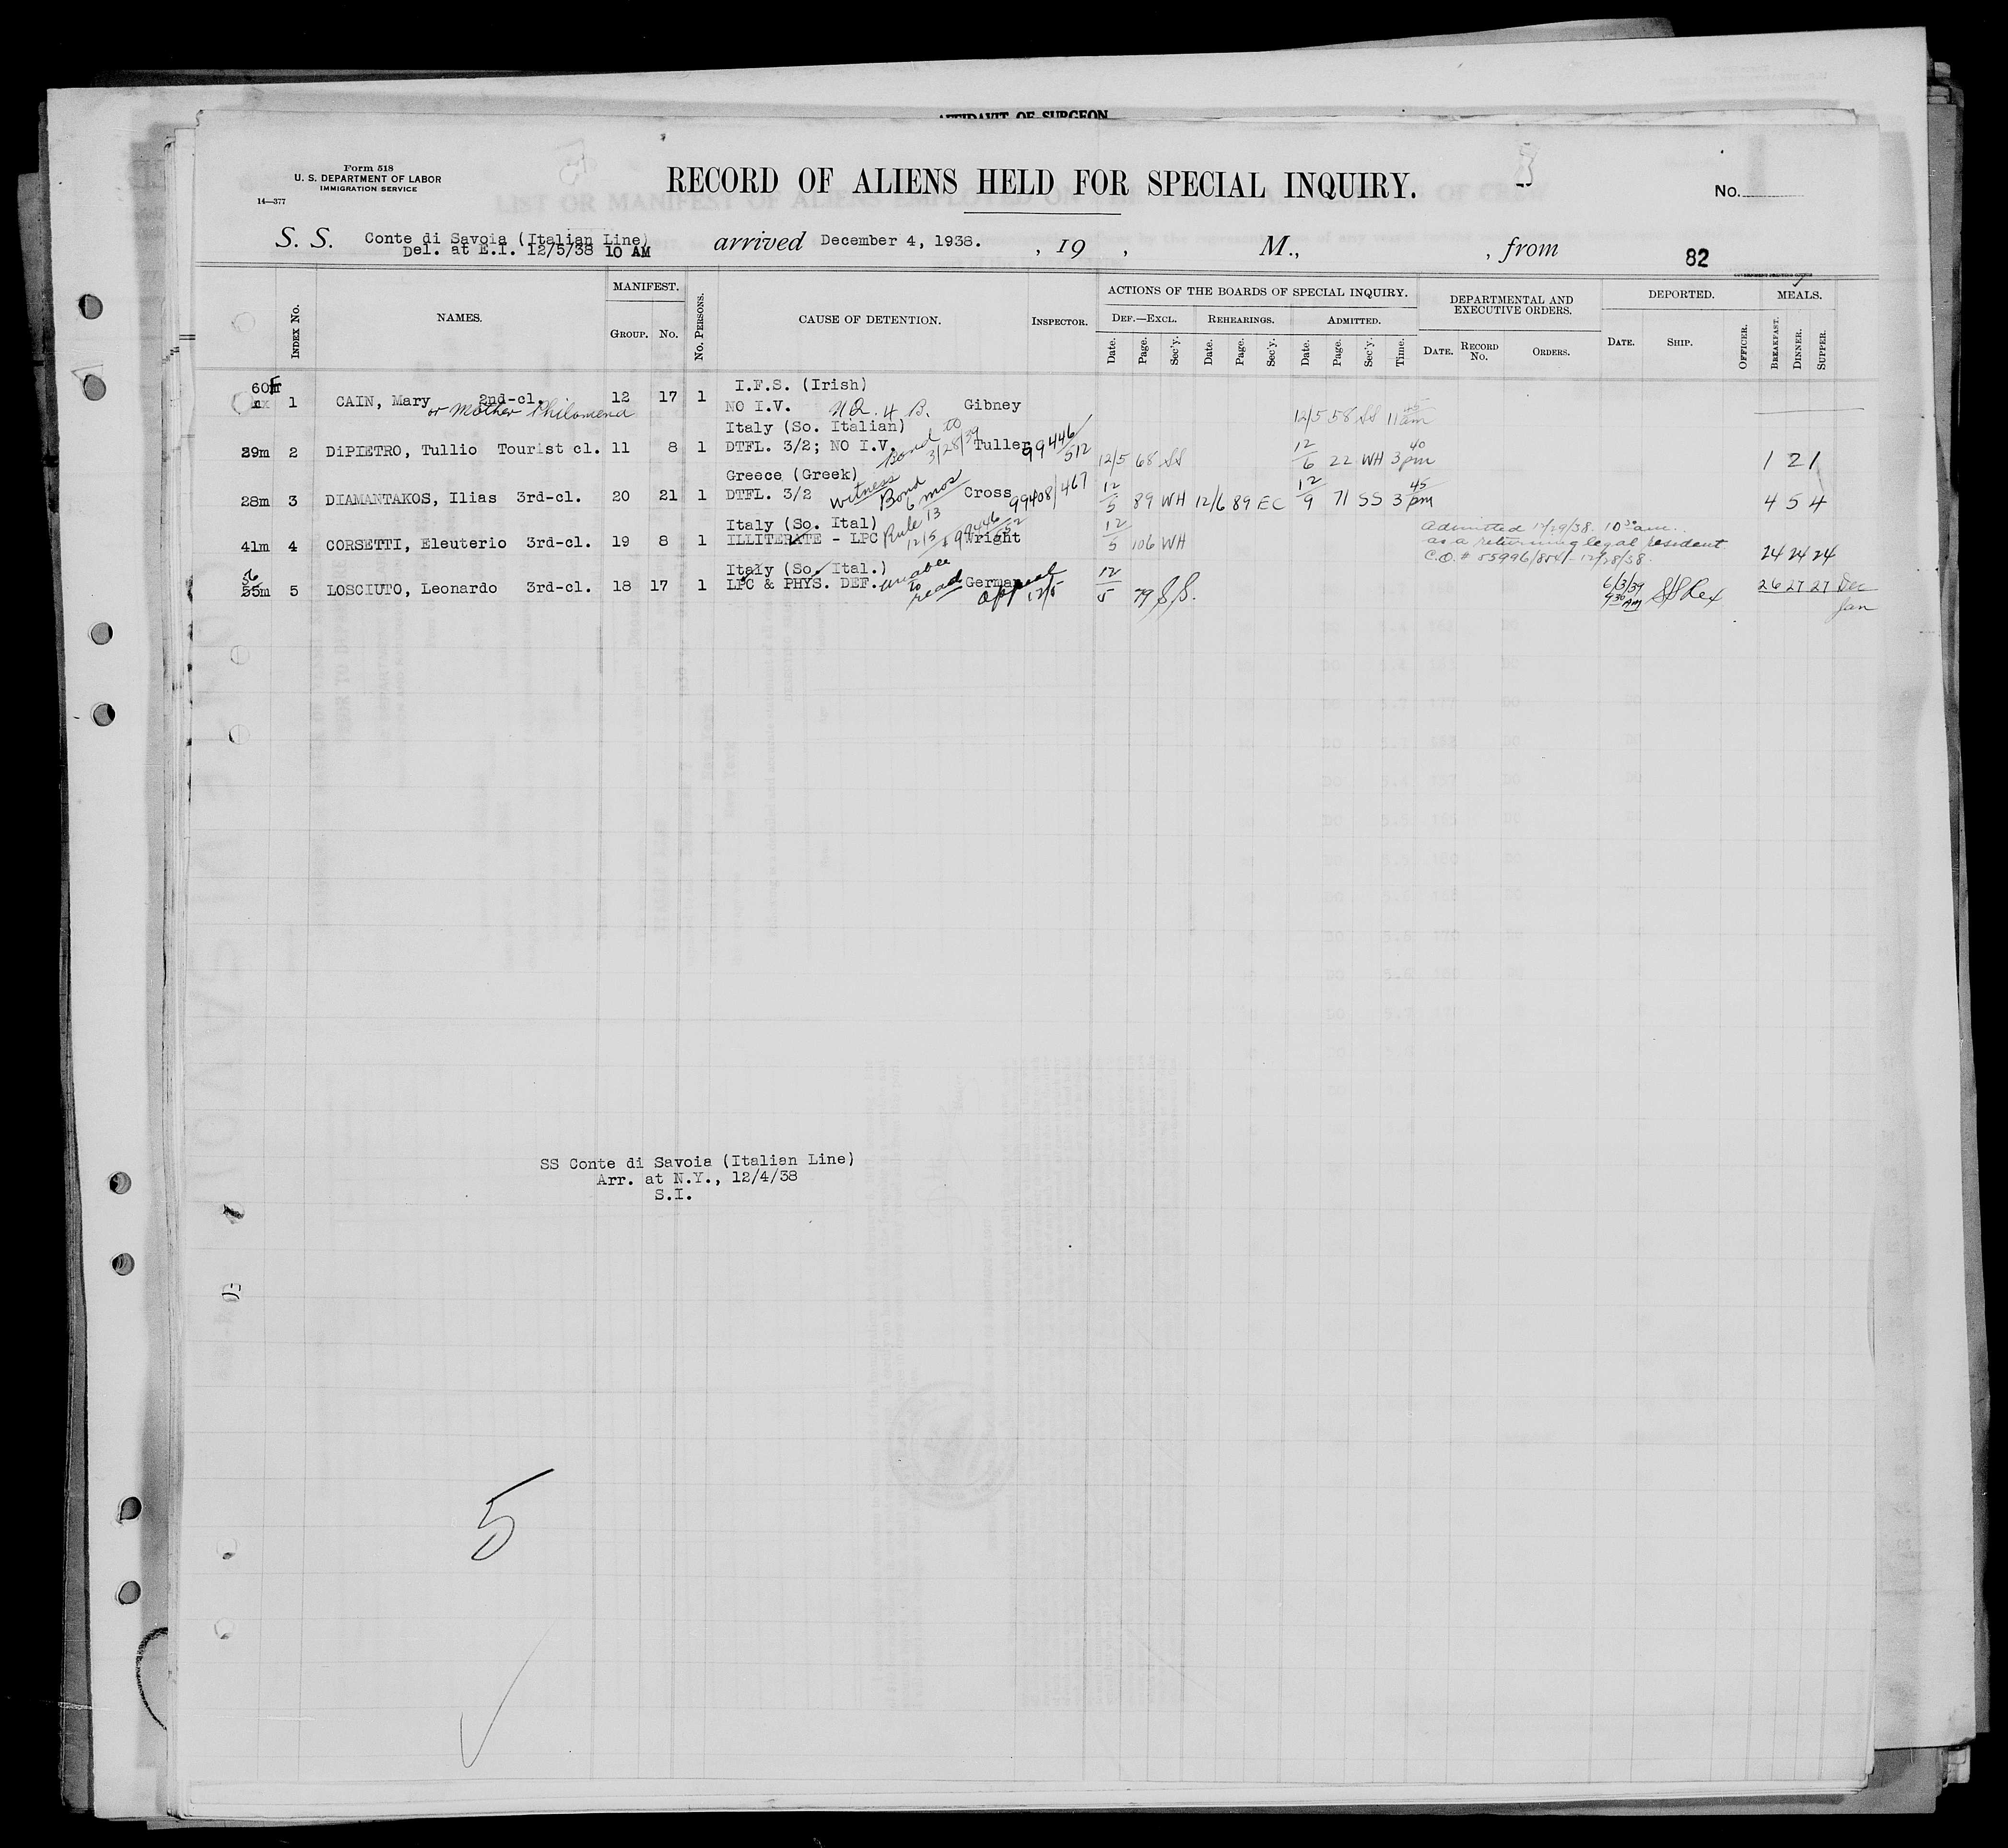 AFFIDAVIT OF SURGEON
Form 518
U. S. DEPARTMENT OF LABOR
IMMIGRATION SERVICE
14—377
RECORD OF ALIENS HELD FOR SPECIAL INQUIRY.
No.
S. S. Conte di Savoia (Italian Line) arrived December 4, 1938. , 19 , M., , from
Del. at E.I. 12/5/38 10 AM
82
INDEX No. NAMES. MANIFEST. GROUP. No. No. PERSONS. CAUSE OF DETENTION. INSPECTOR. ACTIONS OF THE BOARDS OF SPECIAL INQUIRY. DEPARTMENTAL AND EXECUTIVE ORDERS. DEPORTED. MEALS.
DEF.—EXCL. REHEARINGS. ADMITTED.
Date. Page. Sec'y. Date. Page. Sec'y. Date. Page. Sec'y. Time. DATE. RECORD No. ORDERS. DATE. SHIP. OFFICER. BREAKFAST. DINNER. SUPPER.
I.F.S. (Irish)
60 F 1 CAIN, Mary 2nd-cl. 12 17 1 NO I.V. Gibney 12/5 58 SS 11 45 am
or Mother Philomena
Italy (So. Italian)
29m 2 DiPIETRO, Tullio Tourist cl. 11 8 1 DTFL. 3/2; NO I.V. Bond to 3/28/39 Tuller 99446/512 12/5 68 SS 12/6 22 WH 3 40 pm 1 2 1
Greece (Greek)
28m 3 DIAMANTAKOS, Ilias 3rd-cl. 20 21 1 DTFL. 3/2 witness Bond 6 mos Cross 99408/467 12/5 89 WH 12/6 89 EC 12/9 71 SS 3 45 pm 4 5 4
Italy (So. Ital)
41m 4 CORSETTI, Eleuterio 3rd-cl. 19 8 1 ILLITERATE - LPC Rule 13 12/5 Wright 12/5 106 WH 24 24 24
Admitted 12/29/38 10 30 am.
as a returning legal resident
C.O. # 55996/854 - 12/28/38
Italy (So. Ital.)
56 55m 5 LOSCIUTO, Leonardo 3rd-cl. 18 17 1 LPC & PHYS. DEF. unable to read German appeal 12/5 12/5 79 S.S. 6/3/39 9 30 AM SS Rex 26 27 27 Dec
Jan
SS Conte di Savoia (Italian Line)
Arr. at N.Y., 12/4/38
S.I.
5